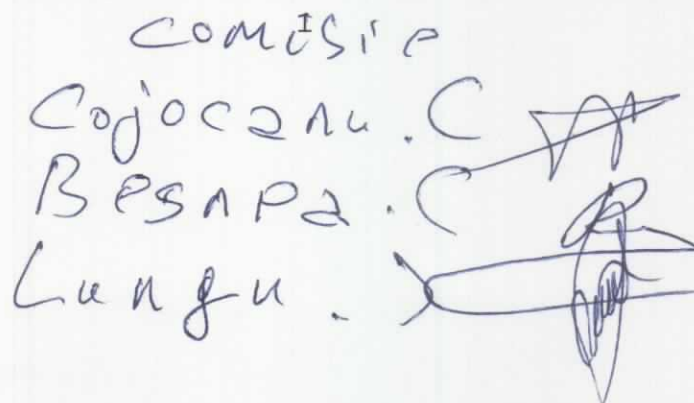 comisie
Cojocaru. C
Besnea. C
Lungu.